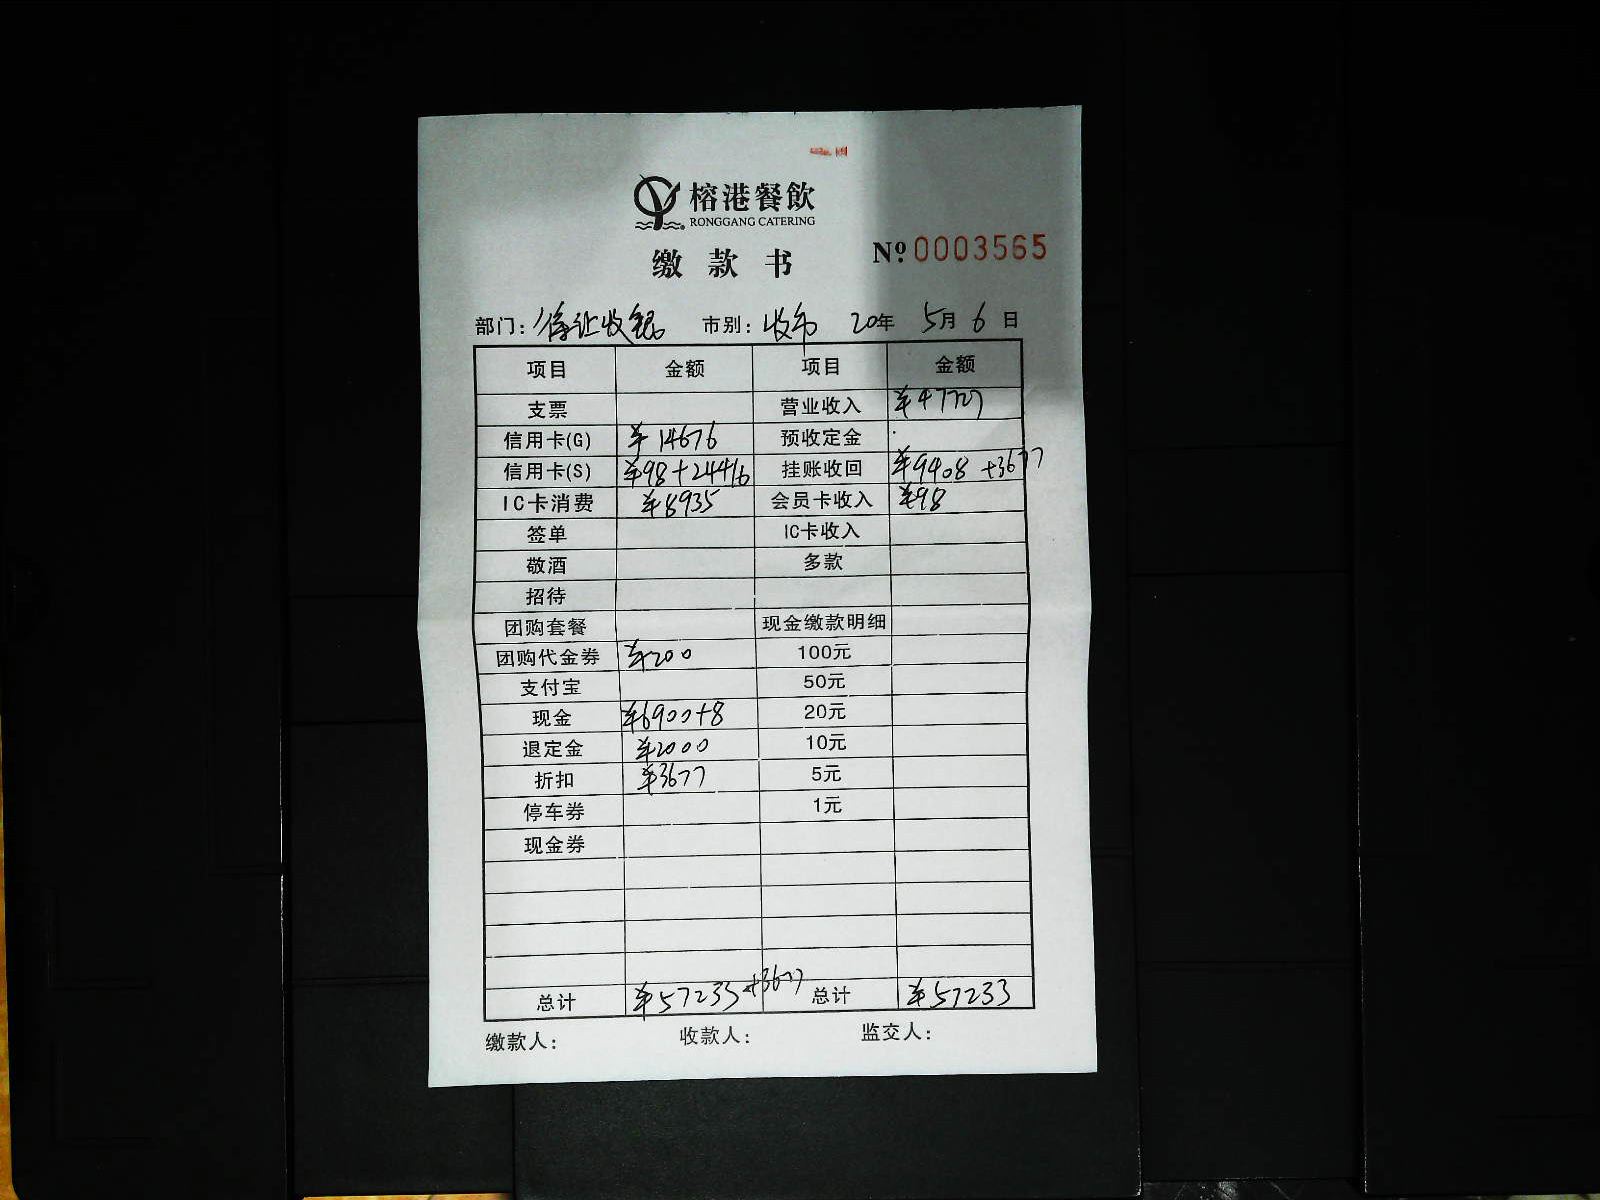 榕港餐飲
RONGGANG CATERING
缴款书
№ 0003565
部门: 收银 市别: 收市 20年 5月 6日
项目 金额 项目 金额
支票 营业收入 ¥47727
信用卡(G) ¥14676 预收定金
信用卡(S) ¥98+24416 挂账收回 ¥9408 +3677
IC卡消费 ¥8935 会员卡收入 ¥98
签单 IC卡收入
敬酒 多款
招待
团购套餐 现金缴款明细
团购代金券 ¥200 100元
支付宝 50元
现金 ¥6900+8 20元
退定金 ¥2000 10元
折扣 ¥3677 5元
停车券 1元
现金券
总计 ¥57233+3677 总计 ¥57233
缴款人: 收款人: 监交人: